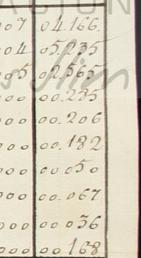 007 04.166.
004 05.235
005 02.565
000 00.235
000 00.206
000 00.182
000 00 050
000 00.067
000 00 036
000 00.168